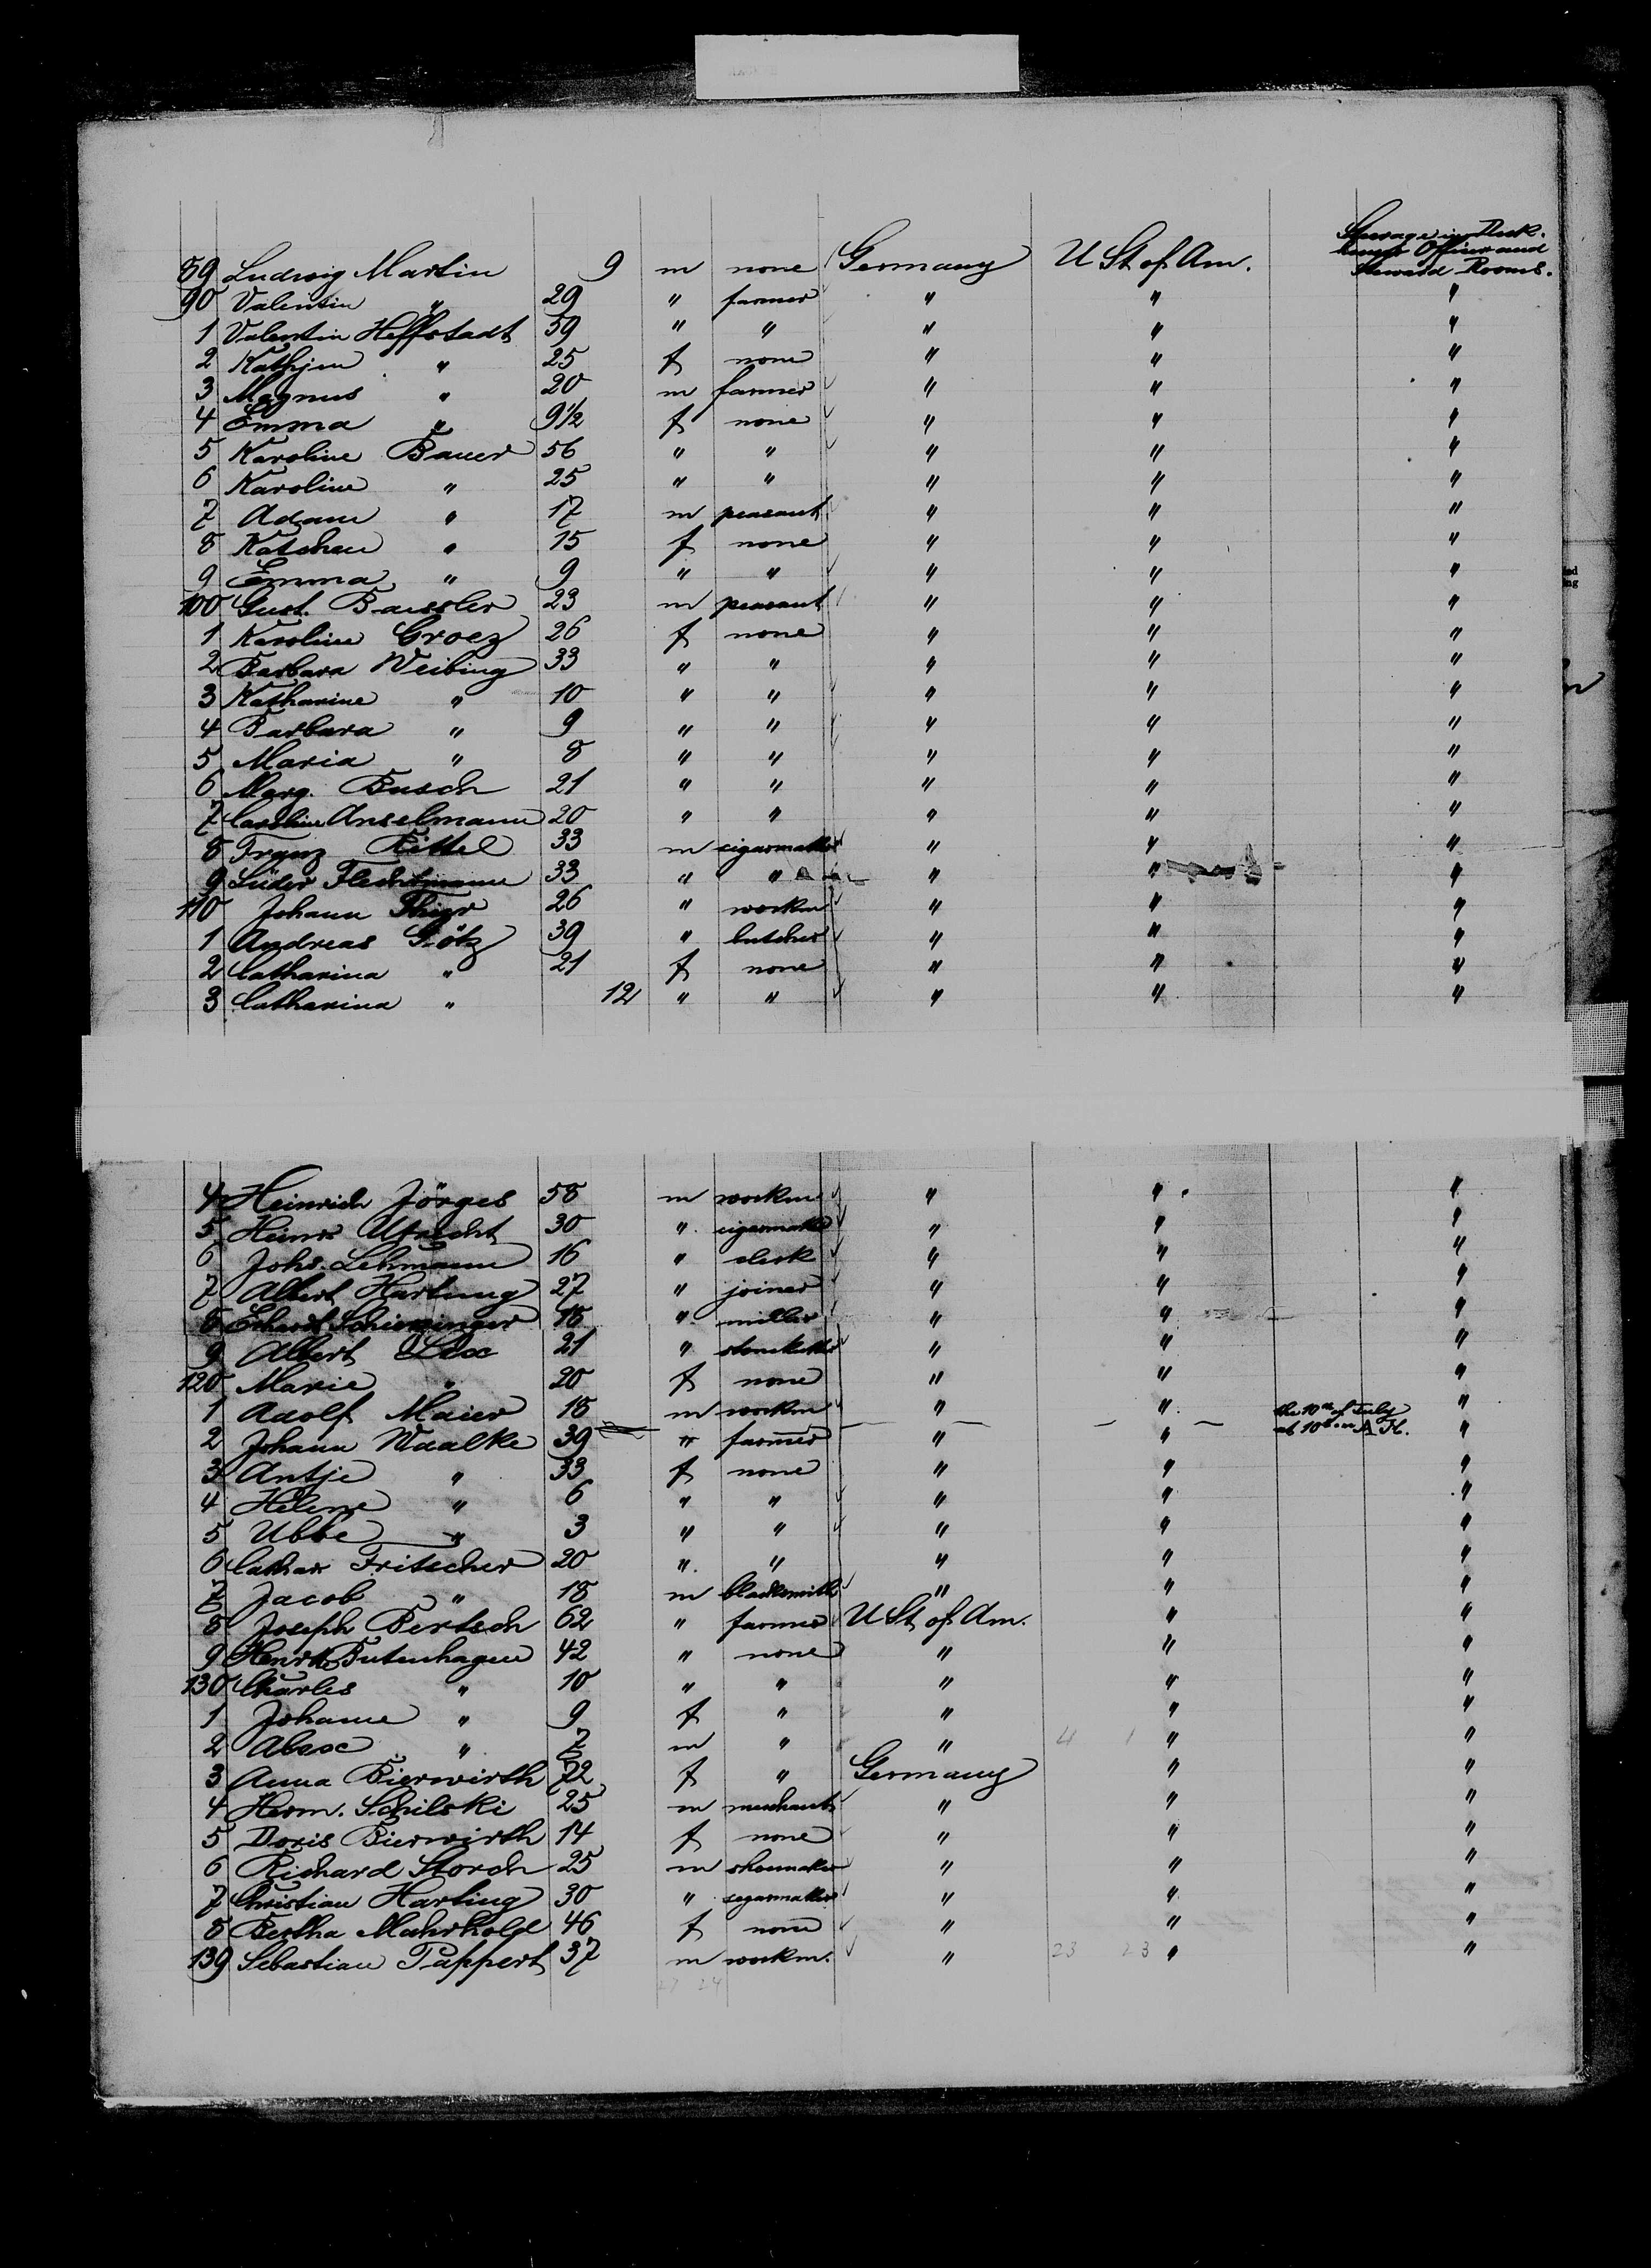 Steerage in Deck.
house Officer and
Steward Rooms.
89 Ludwig Martin 9 m none Germany U St of Am.
90 Valentin " 29 " farmer " " "
1 Valentin Heffstadt 59 " " " " "
2 Kathjen " 25 f none " " "
3 Magnus " 20 m farmer " " "
4 Emma " 9½ f none " " "
5 Karoline Bauer 56 " " " " "
6 Karoline " 25 " " " " "
7 Adam " 17 m peasant " " "
8 Katchen " 15 f none " " "
9 Emma " 9 " " " " "
100 Gust. Baessler 23 m peasant " " "
1 Karoline Groez 26 f none " " "
2 Barbara Weibing 33 " " " " "
3 Katharine " 10 " " " " "
4 Barbara " 9 " " " " "
5 Maria " 8 " " " " "
6 Marg. Busch 21 " " " " "
7 Caroline Anselmann 20 " " " " "
8 Franz Rittel 33 m cigarmaker " " "
9 Lüder Flechtmann 33 " " " " "
110 Johann 26 " workm " " "
1 Andreas Götz 39 " butcher " " "
2 Catharina " 21 f none " " "
3 Catharina " 12 " " " " "
4 Heinrich Jörges 58 m workm " " "
5 Heinr. Albrecht 30 " cigarmaker " " "
6 Johs. Lehmann 16 " clerk " " "
7 Albert Hartung 27 " joiner " " "
8 18 " miller " " "
9 Albert Lex 21 " stonekutter " " "
120 Marie " 20 f none " " "
1 Adolf Maier 18 m workm " " "
the 10th of July
at 10 A.H.
2 Johann Waalke 39 " farmer " " "
3 Antje " 33 f none " " "
4 Helene " 6 " " " " "
5 Ubbe " 3 " " " " "
6 Cathar Fritscher 20 " " " " "
7 Jacob " 18 m blacksmith " " "
8 Joseph Bertsch 62 " farmer U St of Am. " "
9 Henrd. Butenhagen 42 " none " " "
130 Charles " 10 " " " " "
1 Johanne " 9 f " " " "
2 Alexe " 7 m " " 4 1 " "
3 Anna Bierwirth 72 f " Germany " "
4 Herm. Schilski 25 m merchant " " "
5 Doris Bierwirth 14 f none " " "
6 Richard Storch 25 m shoemaker " " "
7 Christian Harting 30 " segarmaker " " "
8 Bertha Mahrhold 46 f none " " "
139 Sebastian Pappert 37 m workm. " 23 23 " "
27 24